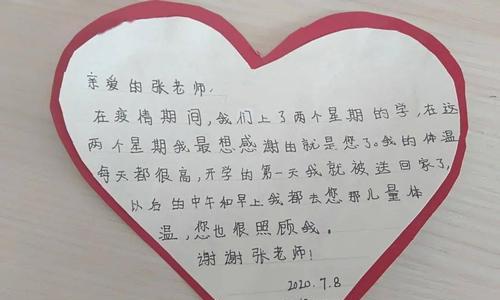 亲爱的张老师,
在疫情期间,我们上了两个星期的学,在这
两个星期我最想感谢的就是您了。我的体温
每天都很高,开学的第一天我就被送回家了,
以后的中午和早上我都去您那儿量体
温,您也很照顾我。
谢谢张老师!
2020.7.8